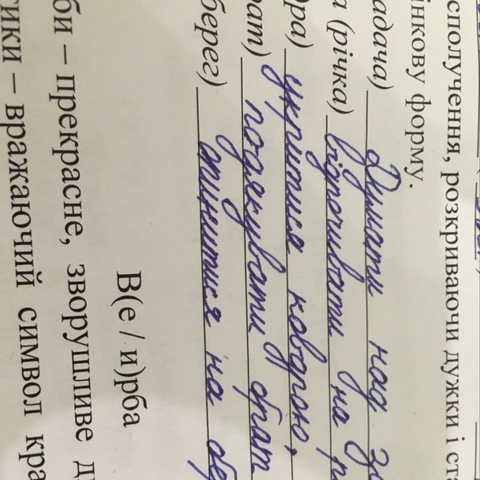 сполучення, розкриваючи дужки і ста
інкову форму.
адача) Думати над з
а (річка) відпочивати на р
ра) укритися ковдрою,
рат) подякувати брат
берег) опинитися на
В(е / и)рба
би – прекрасне, зворушливе д
тики – вражаючий символ кра